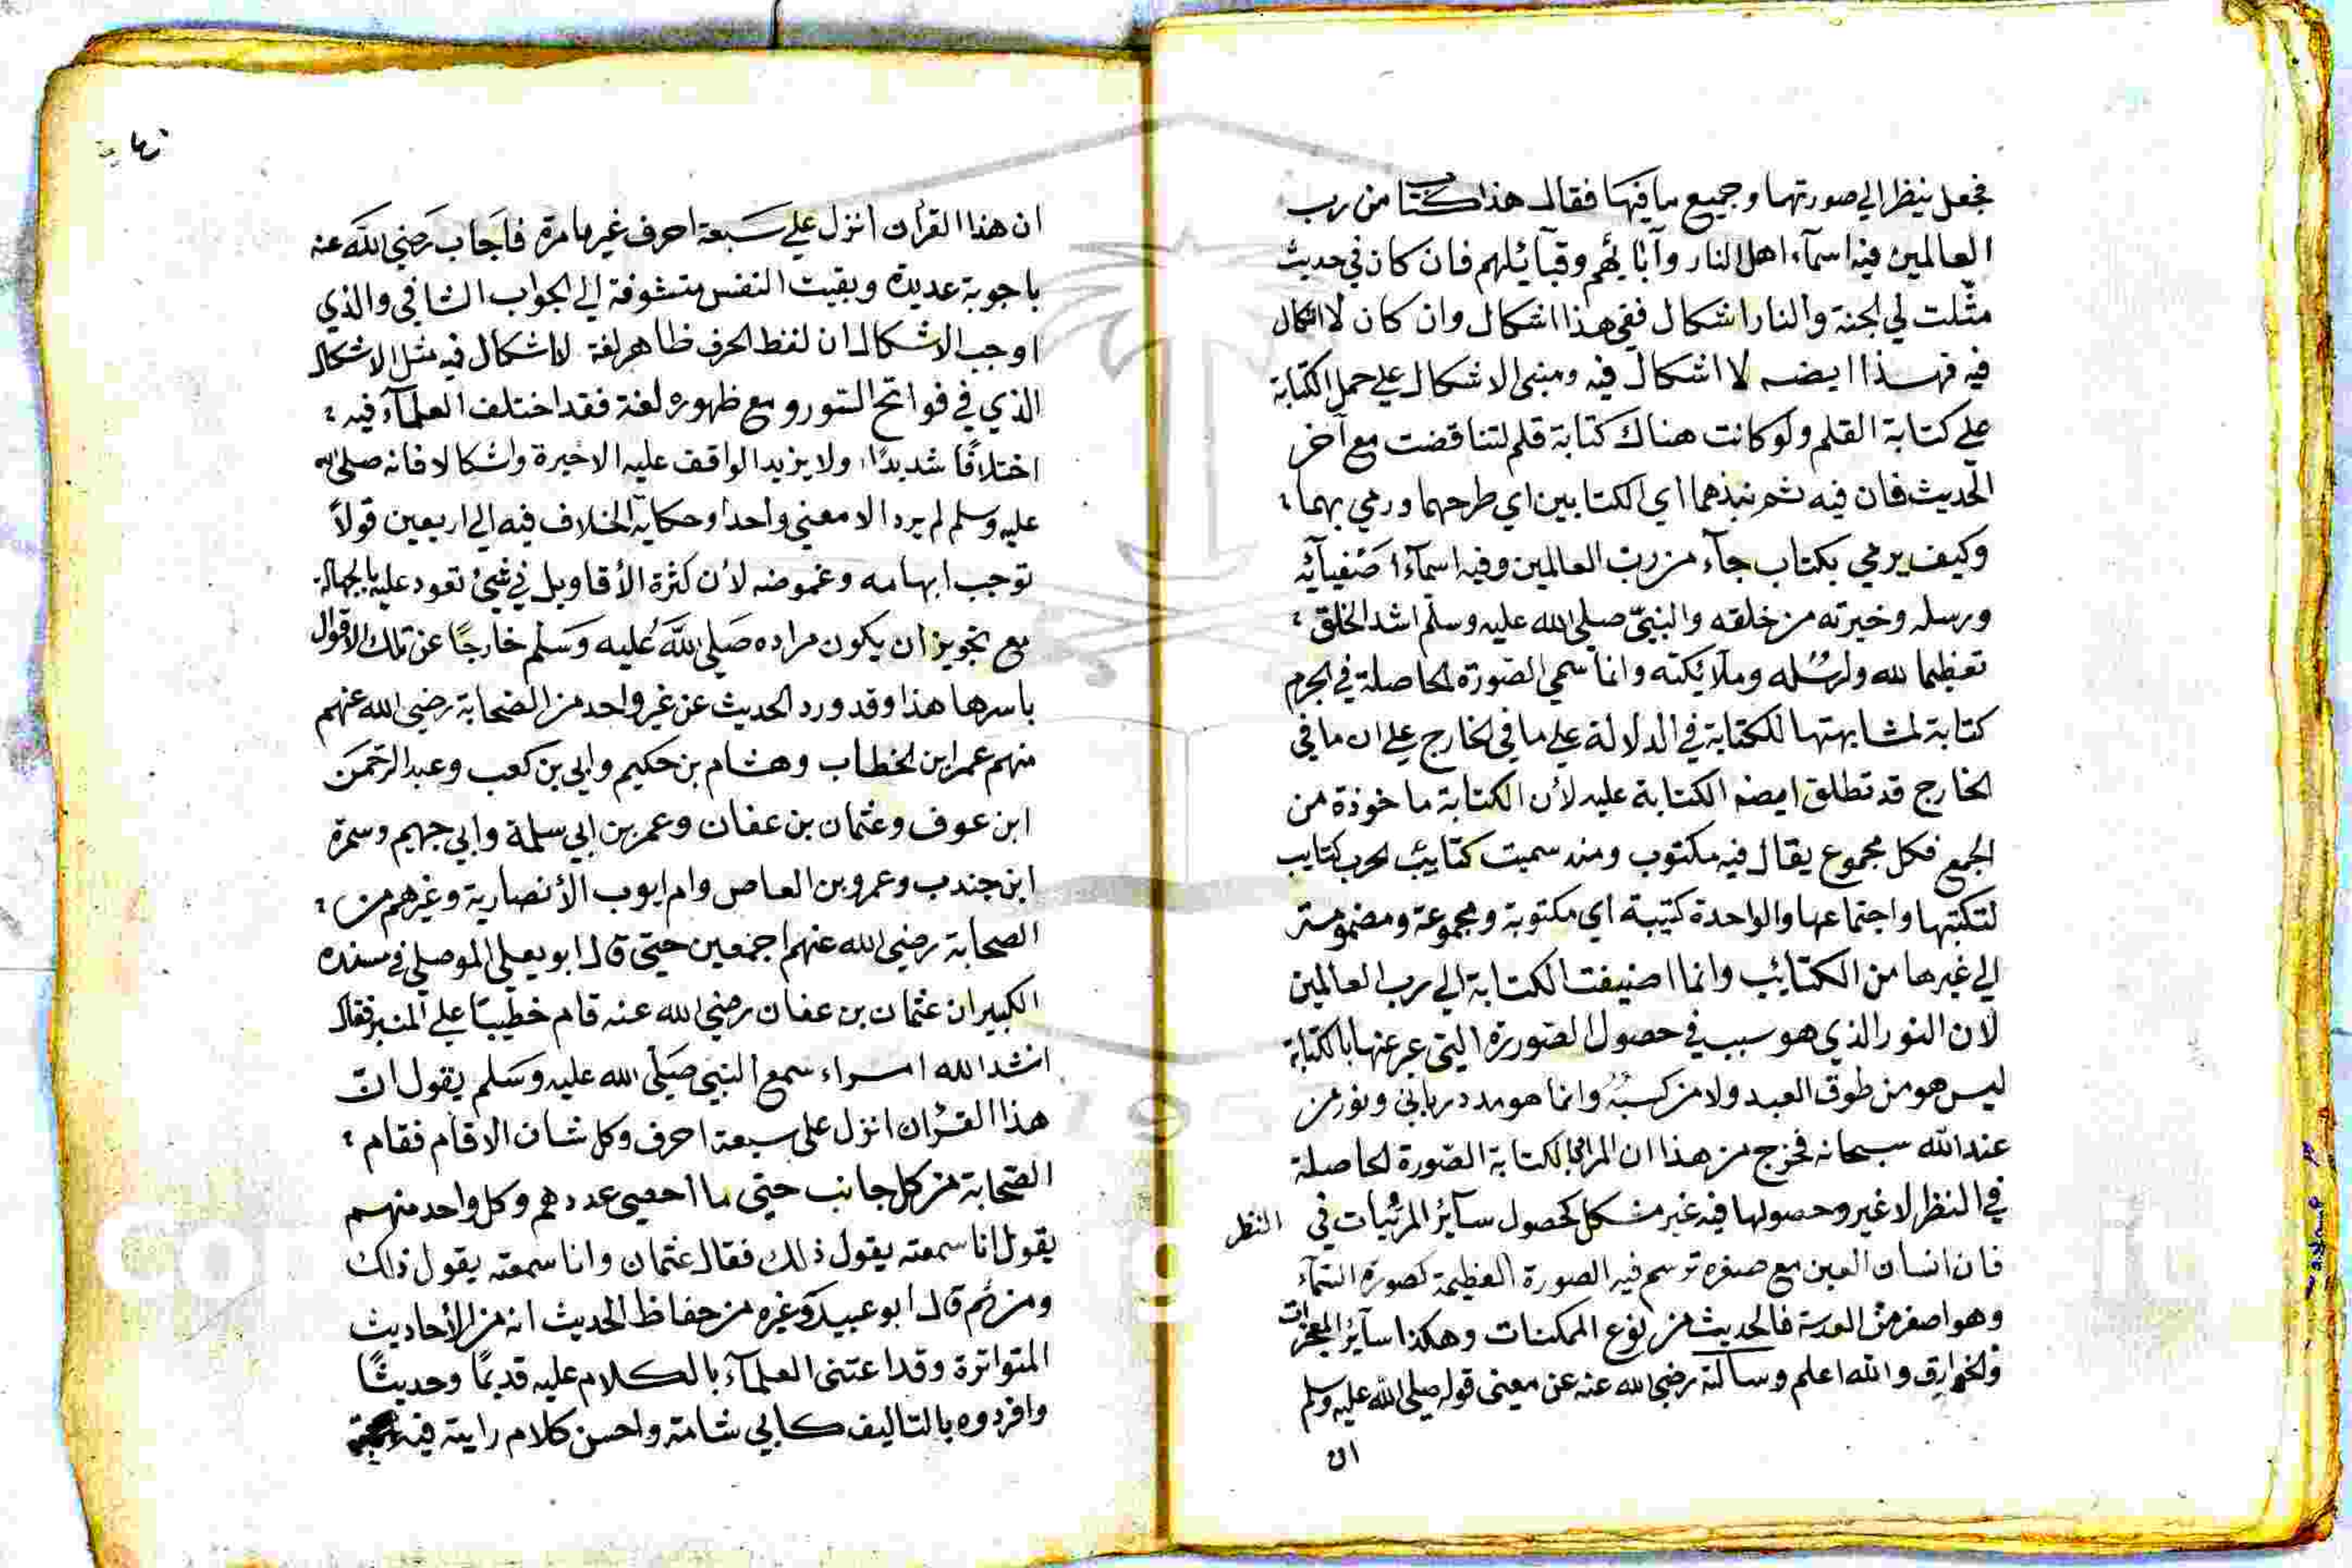 فجعل ينظر الي صورتهما وجميع ما فيها فقال هذا كتاب من رب
العالمين فيه اسمآء اهل النار وآبائهم وقبآئلهم فان كان في حديث
مثّلت لي الجنة والنار اشكال ففي هذا اشكال وان كان لا اشكال
فيه فهذا ايضه لا اشكال فيه ومبنى الاشكال علي حمل الكتابة
علي كتابة القلم ولو كانت هناك كتابة قلم لتناقضت مع آخر
الحديث فان فيه ثم نبذهما اي الكتابين اي طرحهما ورمي بهما
وكيف يرمي بكتاب جآء من رب العالمين وفيه اسمآء اصفيآئه
ورسله وخيرته من خلقه والنبيّ صلي الله عليه وسلم اشد الخلق
تعظيما لله ولرسله وملائكته وانما سمي الصورة الحاصلة في الجرم
كتابة لمشابهتها للكتابة في الدلالة علي ما في الخارج علي ان ما في
الخارج قد تطلق ايضه الكتابة عليه لأن الكتابة ماخوذة من
الجمع فكل مجموع يقال فيه مكتوب ومنه سميت كتائب الحرب كتايب
لتكتبها واجتماعها والواحدة كتيبة اي مكتوبة ومجموعة ومضمومة
الي غيرها من الكتائب وانما اضيفت الكتابة الي رب العالمين
لان النور الذي هو سبب في حصول الصورة التي عبر عنها بالكتابة
ليس هو من طوق العبد ولا من كسبه وانما هو مدد رباني ونور من
عند الله سبحانه فخرج من هذا ان المراد بالكتابة الصورة الحاصلة
في النظر لا غير وحصولها فيه غير مشكل كحصول سآئر المرئيات في النظر
فان انسان العين مع صغره ترسم فيه الصورة العظيمة كصورة السمآء
وهو اصغر من العدسة فالحديث من نوع الممكنات وهكذا سآئر المعجزات
والخوارق والله اعلم وسألته رضي الله عنه عن معنى قوله صلي الله عليه وسلم
ان
ان هذا القرآن انزل علي سبعة احرف غير ما مرة فاجاب رضي الله عنه
باجوبة عديدة وبقيت النفس متشوفة الي الجواب الشافي والذي
اوجب الاشكال ان لفظ الحرف ظاهر لغة لا اشكال فيه مثل الاشكال
الذي في فواتح السور ومع ظهوره لغة فقد اختلف العلمآء فيه
اختلافًا شديدًا ولا يزيد الواقف عليه الا حيرة واشكالا فانه صلي الله
عليه وسلم لم يرد الا معني واحدا وحكاية الخلاف فيه الي اربعين قولاً
توجب ابهامه وغموضه لأن كثرة الأقاويل في شيئ تعود عليه بالجهالة
مع تجويز ان يكون مراده صلي الله عليه وسلم خارجًا عن تلك الاقوال
باسرها هذا وقد ورد الحديث عن غير واحد من الصحابة رضي الله عنهم
منهم عمر ابن الخطاب وهشام بن حكيم وابي بن كعب وعبد الرحمن
ابن عوف وعثمان بن عفان وعمر بن ابي سلمة وابي جهيم وسمرة
ابن جندب وعمرو بن العاص وام ايوب الأنصارية وغيرهم من
الصحابة رضي الله عنهم اجمعين حتي قال ابو يعلي الموصلي في مسنده
الكبير ان عثمان بن عفان رضي الله عنه قام خطيبًا علي المنبر فقال
انشد الله امراء سمع النبي صلي الله عليه وسلم يقول انّ
هذا القرآن انزل على سبعة احرف وكل شاف الا قام فقام
الصحابة من كل جانب حتي ما احصي عددهم وكل واحد منهم
يقول انا سمعته يقول ذلك فقال عثمان وانا سمعته يقول ذلك
ومن ثم قال ابو عبيد وغيره من حفاظ الحديث انه من الأحاديث
المتواترة وقد اعتنى العلمآء بالكلام عليه قديمًا وحديثًا
وافردوه بالتاليف كابي شامة واحسن كلام رايته فيه